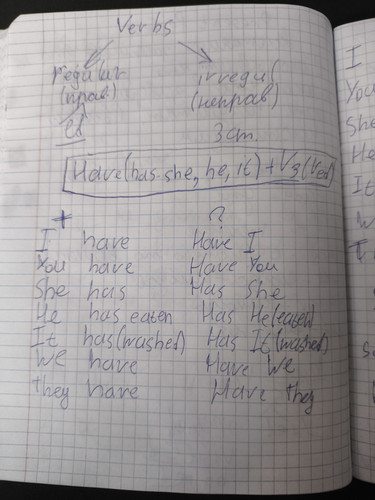 Verbs
regular irregul
(прав) (неправ)
ed 3 ст.
Have(has-she, he, it) + V3 (Ved)
+ ?
I have Have I
You have Have You
She has Has She
He has eaten Has He (eaten)
It has (washed) Has It (washed)
We have Have We
they have Have they
I
You
She
He
It
W